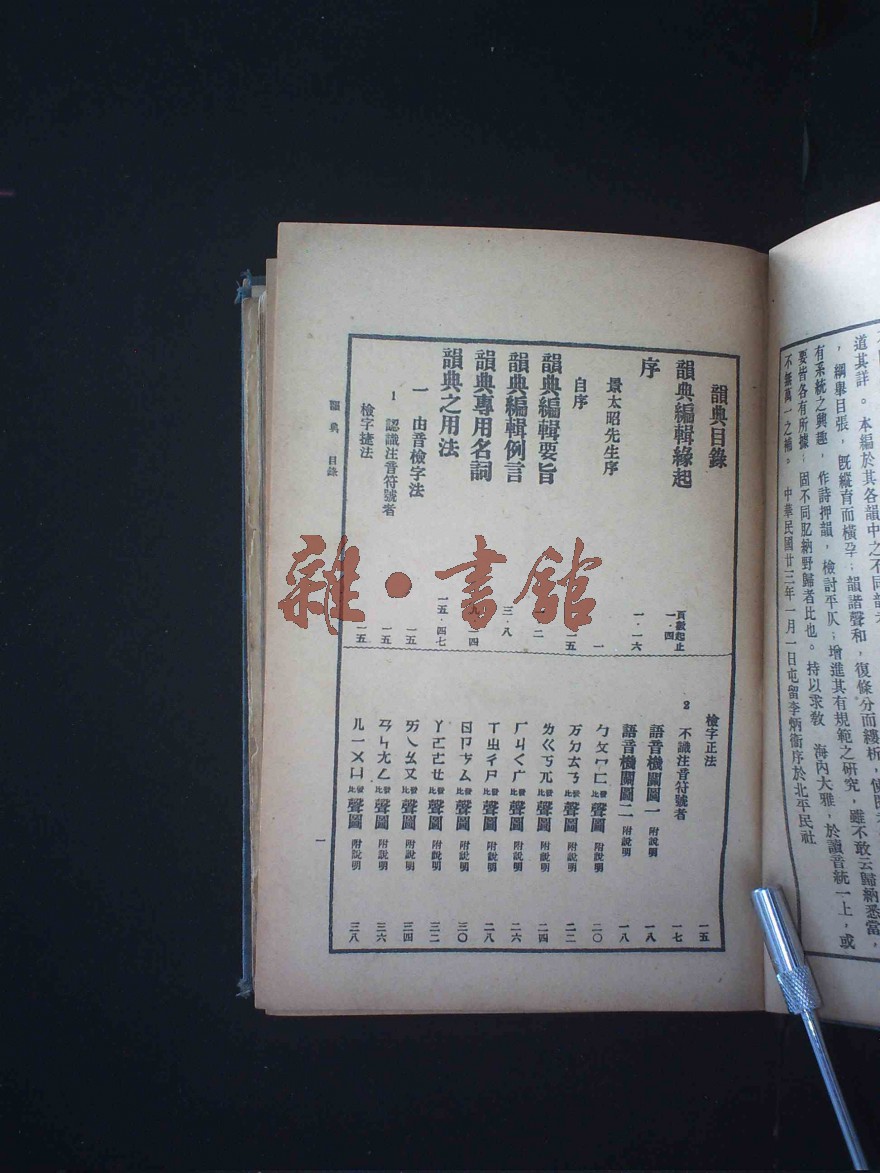 不無萬一之補。　中華民國廿三年一月一日屯留李炳衞序於北平民社
要皆各有所據；固不同肊納野歸者比也。持以求敎　海內大雅，於讀音統一上，或
有系統之興趣，作詩押韻，檢討平仄；增進其有規範之研究，雖不敢云歸納悉當，
，綱舉目張，旣縱育而橫孕；韻諧聲和，復條分而縷析，使閱
道其詳。本編於其各韻中之不同韻
韻典目錄
韻典編輯緣起　頁數起止　一·四
序　一·一六
景太昭先生序　一
自序　一五
韻典編輯要旨　二
韻典編輯例言　三·八
韻典專用名詞　一四
韻典之用法　一五·四七
一　由音檢字法　一五
1　認識注音符號者　一五
檢字捷法　一五
檢字正法　一五
2　不識注音符號者　一七
語音機關圖一　附說明　一八
語音機關圖二　附說明　一八
ㄅㄆㄇㄈ發比聲圖　附說明　二〇
万ㄉㄊㄋ發比聲圖　附說明　二二
ㄌㄍㄎ兀發比聲圖　附說明　二四
ㄏㄐㄑ广發比聲圖　附說明　二六
ㄒㄓㄔㄕ發比聲圖　附說明　二八
ㄖㄗㄘㄙ發比聲圖　附說明　三〇
ㄚㄛㄜㄝ發比聲圖　附說明　三二
ㄞㄟㄠㄡ發比聲圖　附說明　三四
ㄢㄣㄤㄥ發比聲圖　附說明　三六
ㄦㄧㄨㄩ發比聲圖　附說明　三八
韻典　目錄
一
雜·書館